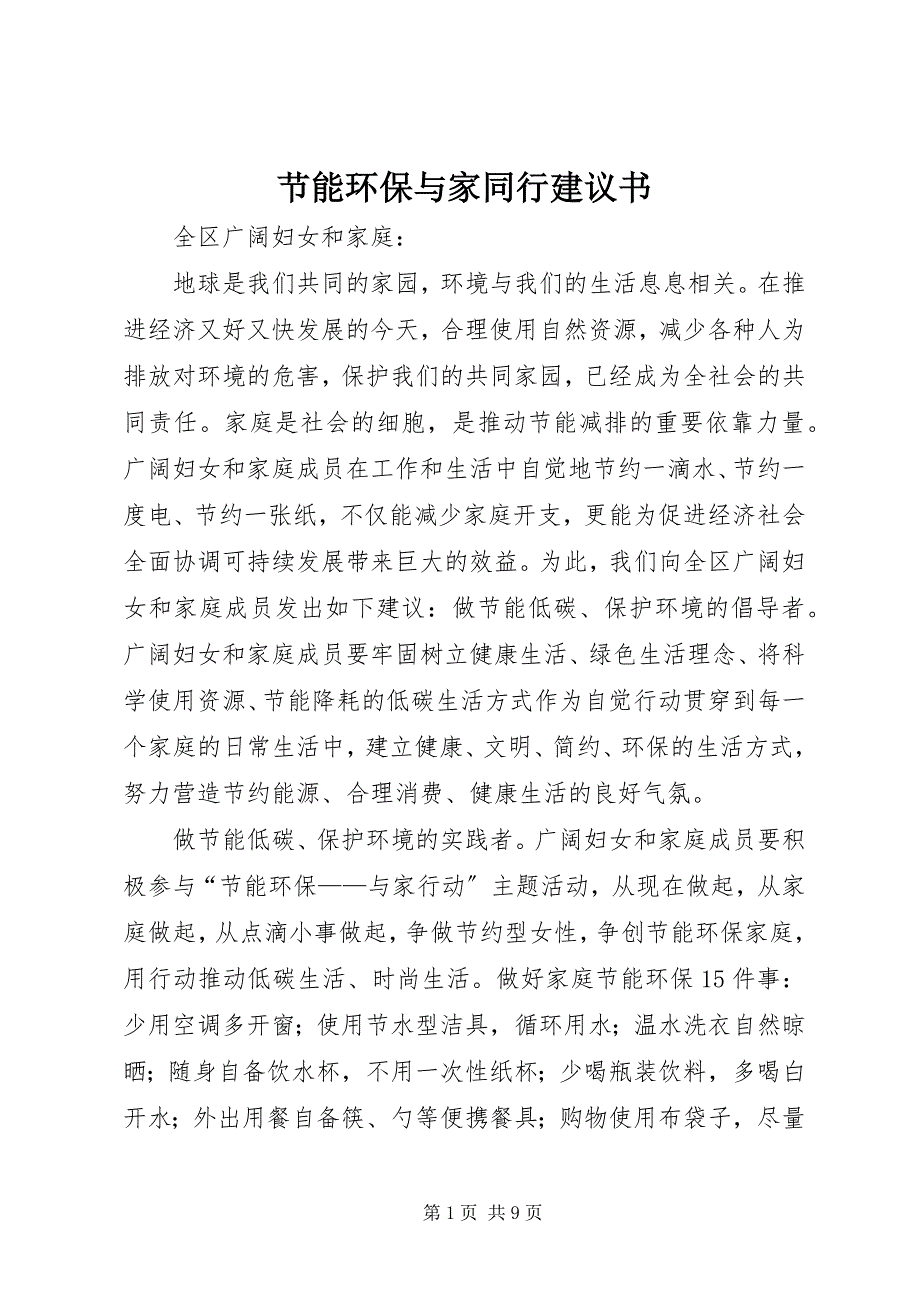 节能环保与家同行建议书
全区广阔妇女和家庭：
地球是我们共同的家园，环境与我们的生活息息相关。在推
进经济又好又快发展的今天，合理使用自然资源，减少各种人为
排放对环境的危害，保护我们的共同家园，已经成为全社会的共
同责任。家庭是社会的细胞，是推动节能减排的重要依靠力量。
广阔妇女和家庭成员在工作和生活中自觉地节约一滴水、节约一
度电、节约一张纸，不仅能减少家庭开支，更能为促进经济社会
全面协调可持续发展带来巨大的效益。为此，我们向全区广阔妇
女和家庭成员发出如下建议：做节能低碳、保护环境的倡导者。
广阔妇女和家庭成员要牢固树立健康生活、绿色生活理念、将科
学使用资源、节能降耗的低碳生活方式作为自觉行动贯穿到每一
个家庭的日常生活中，建立健康、文明、简约、环保的生活方式，
努力营造节约能源、合理消费、健康生活的良好气氛。
做节能低碳、保护环境的实践者。广阔妇女和家庭成员要积
极参与“节能环保——与家行动〞主题活动，从现在做起，从家
庭做起，从点滴小事做起，争做节约型女性，争创节能环保家庭，
用行动推动低碳生活、时尚生活。做好家庭节能环保 15 件事：
少用空调多开窗；使用节水型洁具，循环用水；温水洗衣自然晾
晒；随身自备饮水杯，不用一次性纸杯；少喝瓶装饮料，多喝白
开水；外出用餐自备筷、勺等便携餐具；购物使用布袋子，尽量
第 1 页 共 9 页